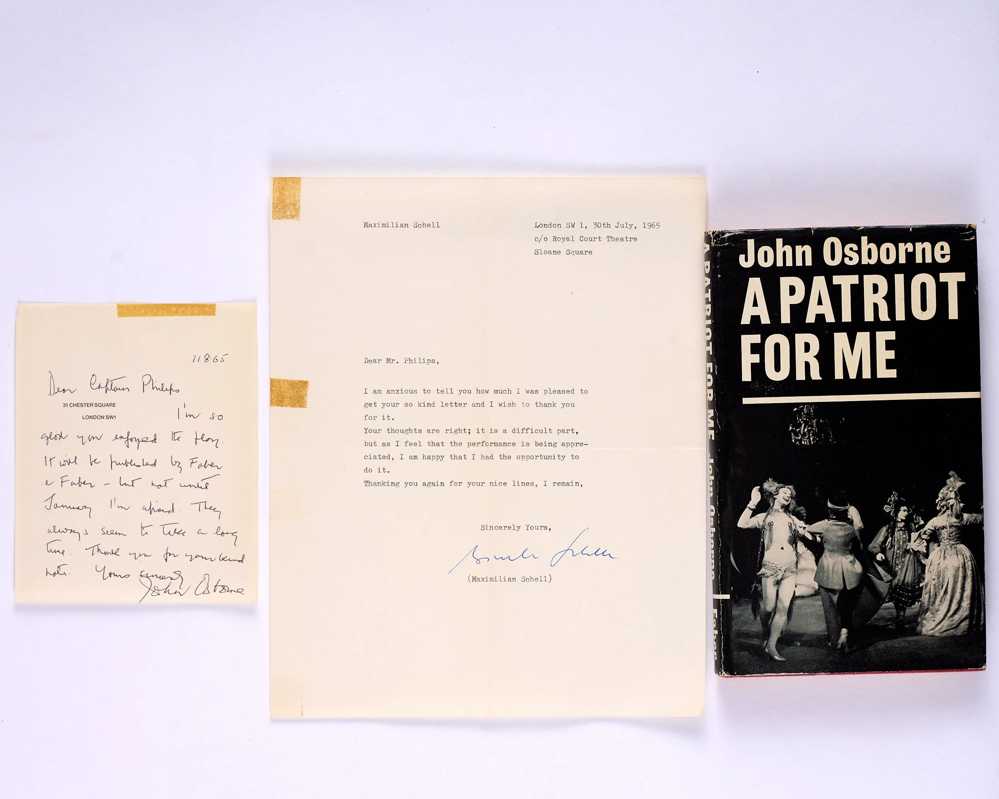 11865
Dear Captain Philips,
31 CHESTER SQUARE
LONDON SW1
I'm so
glad you enjoyed the play.
It will be published by Faber
& Faber - but not until
January I'm afraid. They
always seem to take a long
time. Thank you for your kind
note. Yours sincerely
John Osborne
Maximilian Schell
London SW 1, 30th July, 1965
c/o Royal Court Theatre
Sloane Square
Dear Mr. Philips,
I am anxious to tell you how much I was pleased to
get your so kind letter and I wish to thank you
for it.
Your thoughts are right; it is a difficult part,
but as I feel that the performance is being appre-
ciated, I am happy that I had the opportunity to
do it.
Thanking you again for your nice lines, I remain,
Sincerely Yours,
Maximilian Schell
(Maximilian Schell)
A PATRIOT FOR ME John Osborne Faber
John Osborne
A PATRIOT
FOR ME